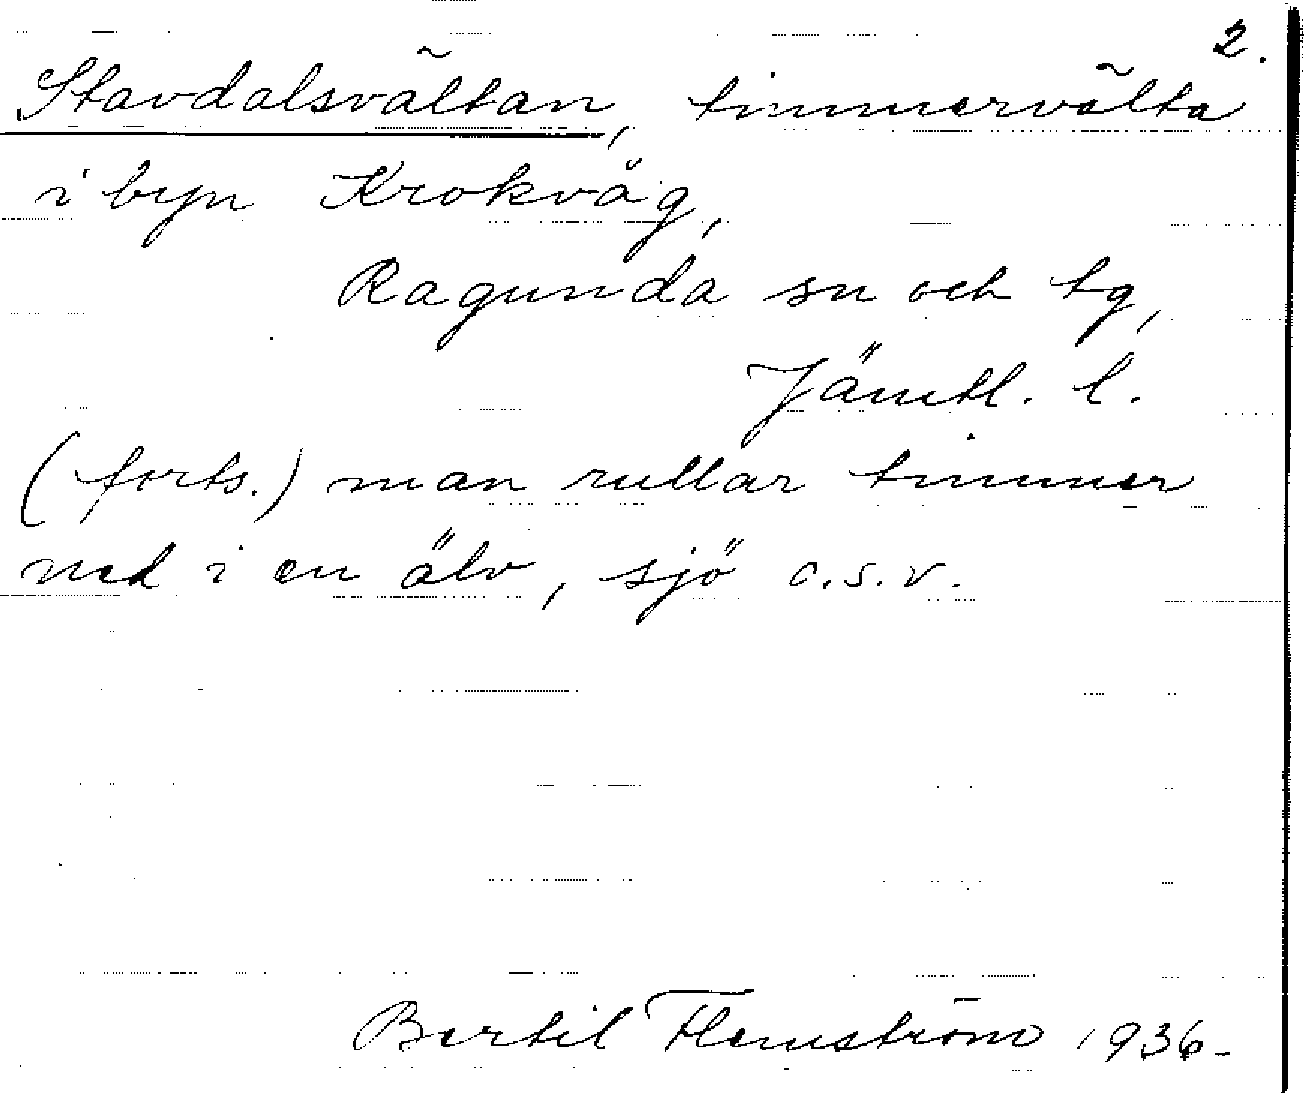 2.
Stavdalsvältan, timmervälta
i byn Krokvåg,
Ragunda sn och tg,
Jämtl. l.
(forts.) man rullar timmer
ned i en älv, sjö o.s.v.
Bertil Flemström 1936-